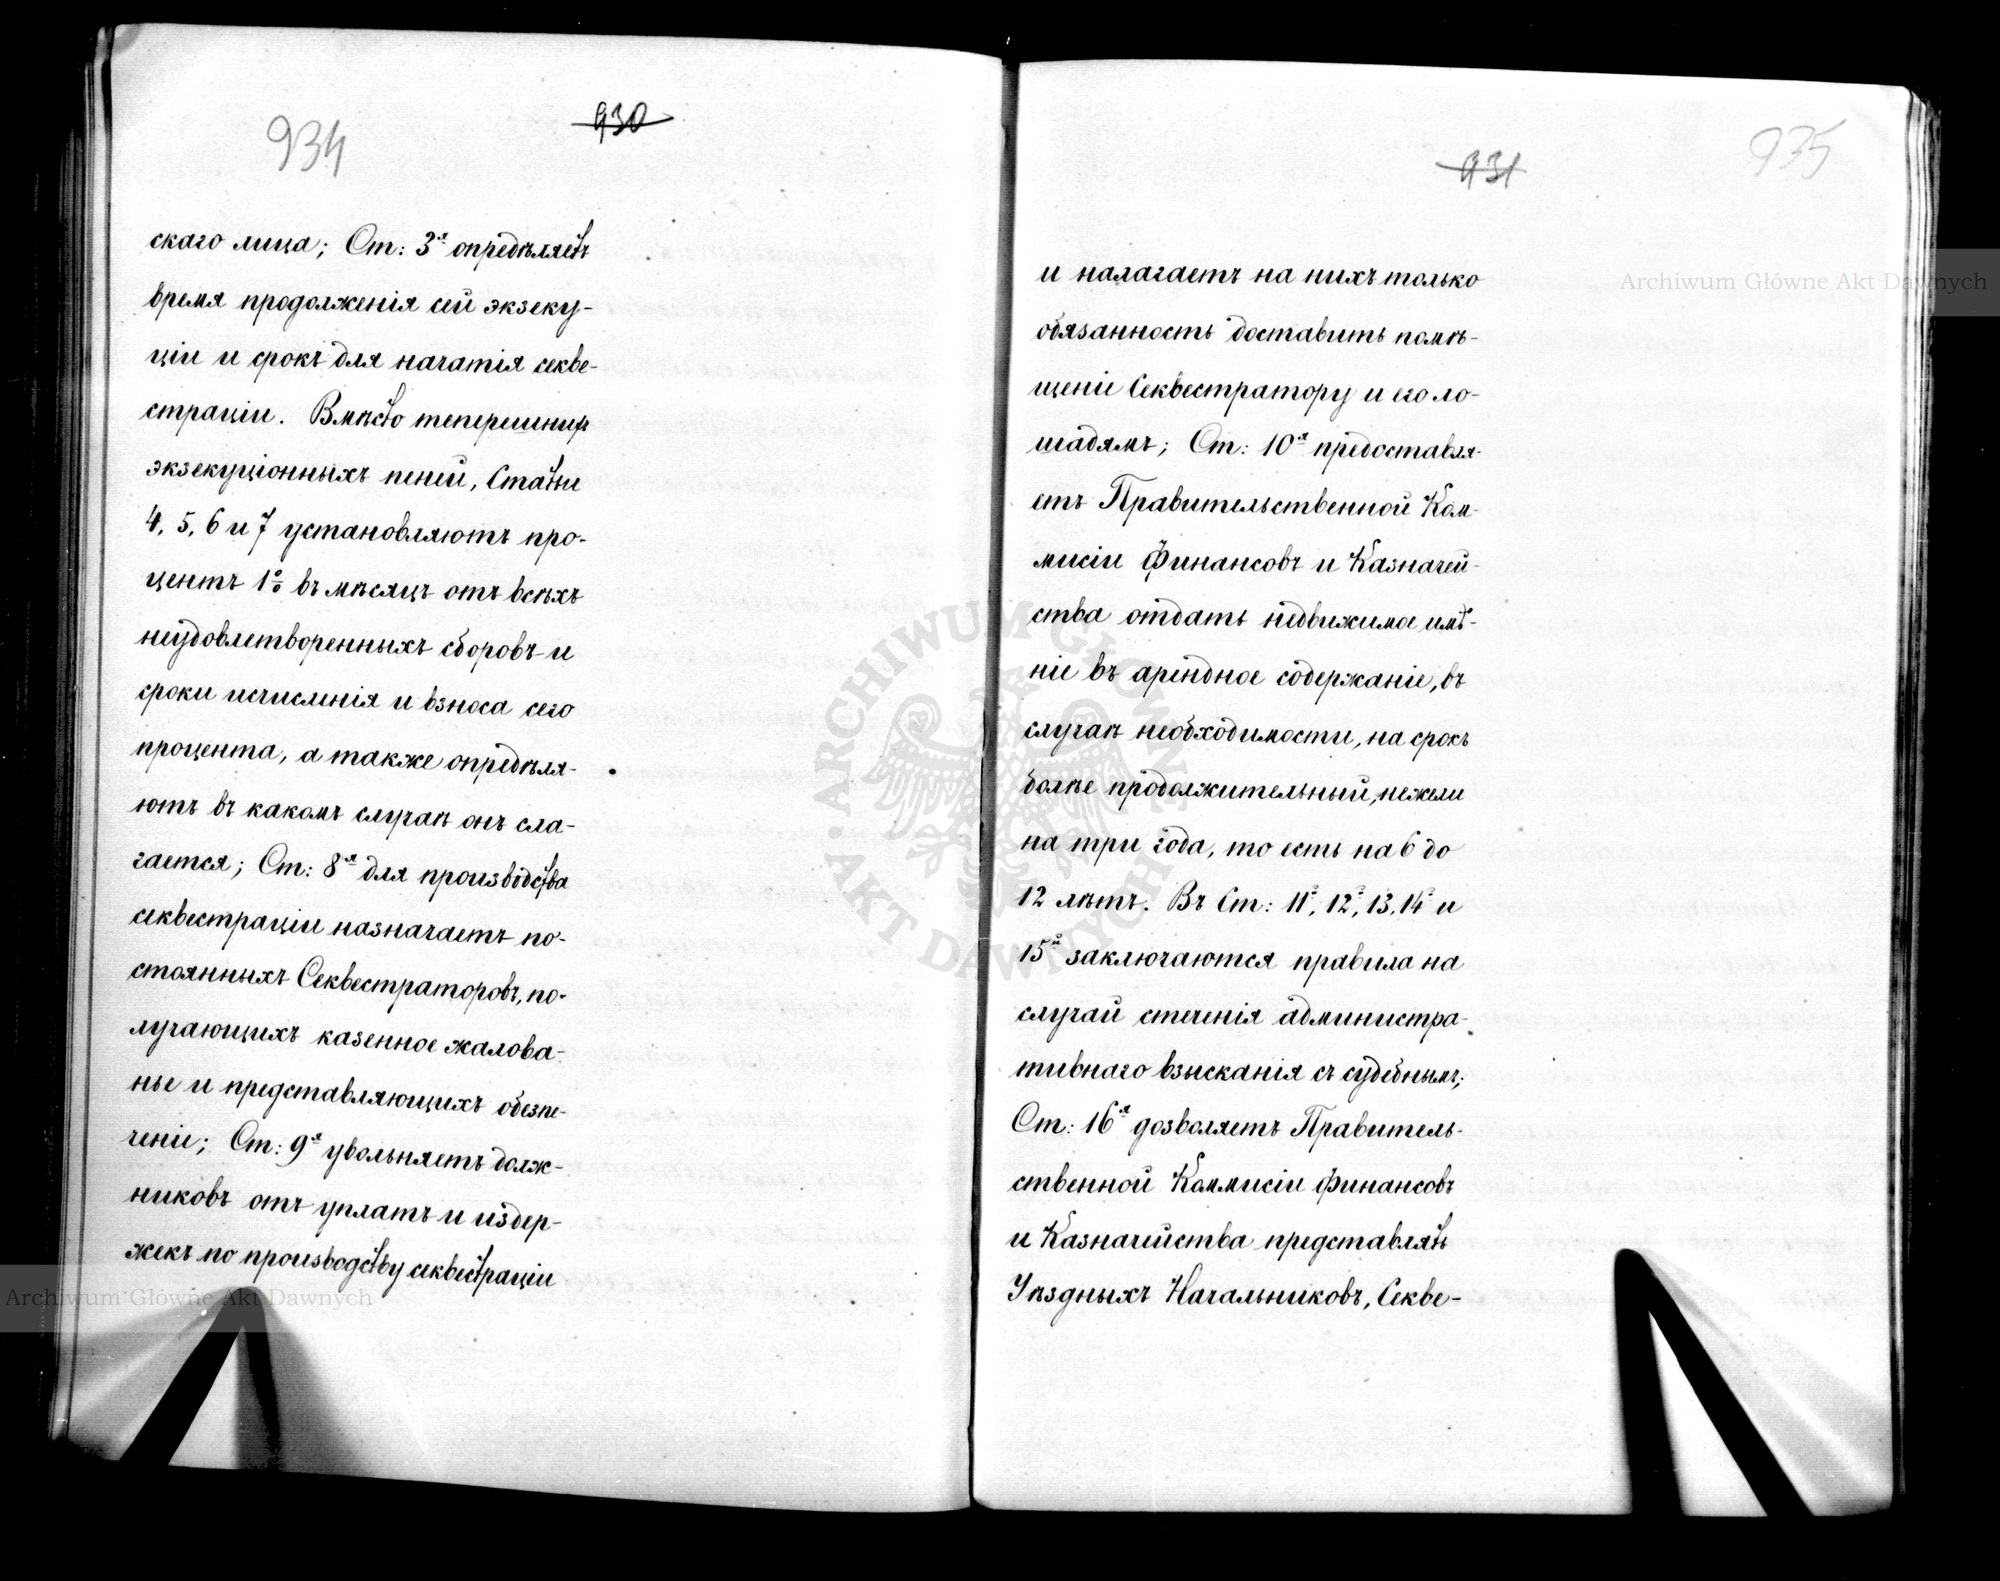 934
930
скаго лица; Ст: 3я опредѣляетъ
время продолженія сей экзеку-
ціи и срокъ для начатія секве-
страціи. Вмѣсто теперешнихъ
экзекуціонныхъ пеней, Статьи
4, 5, 6 и 7 установляютъ про-
центъ 1% въ мѣсяцъ отъ всѣхъ
неудовлетворенныхъ сборовъ и
сроки исчисленія и взноса сего
процента, а также опредѣля-
ютъ въ какомъ случаѣ онъ сла-
гается; Ст: 8я для производства
секвестраціи назначаетъ по-
стоянныхъ Секвестраторовъ, по-
лучающихъ казенное жалова-
нье и представляющихъ обезпе-
ченіе; Ст: 9я увольняетъ долж-
никовъ отъ уплатъ и издер-
жекъ по производству секвестраціи
935
931
и налагаетъ на нихъ только
обязанность доставить помѣ-
щеніе Секвестратору и его ло-
шадямъ; Ст: 10я предоставля-
етъ Правительственной Ком-
мисіи Финансовъ и Казначей-
ства отдать недвижимое имѣ-
ніе въ арендное содержаніе, въ
случаѣ необходимости, на срокъ
болѣе продолжительный, нежели
на три года, то есть на 6 до
12 лѣтъ. Въ Ст: 11й, 12й, 13, 14й и
15й заключаются правила на
случай стеченія администра-
тивнаго взысканія съ судебнымъ;
Ст: 16я дозволяетъ Правитель-
ственной Коммисіи Финансовъ
и Казначейства представлять
Уѣздныхъ Начальниковъ, Секве-
Archiwum Główne Akt Dawnych
Archiwum Główne Akt Dawnych
ARCHIWUM GŁÓWNE AKT DAWNYCH